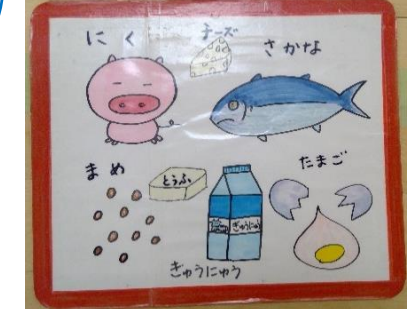 にく
チーズ
さかな
まめ
とうふ
たまご
ぎゅうにゅう
ぎゅうにゅう